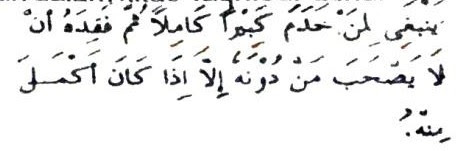 يَنْبَغِى لِمَنْ خَدَمَ كَبِيْرًا كَامِلًا ثُمَّ فَقَدَهُ أَنْ
لَا يَصْحَبَ مَنْ دُوْنَهُ إِلَّا إِذَا كَانَ أَكْمَلَ
مِنْهُ.